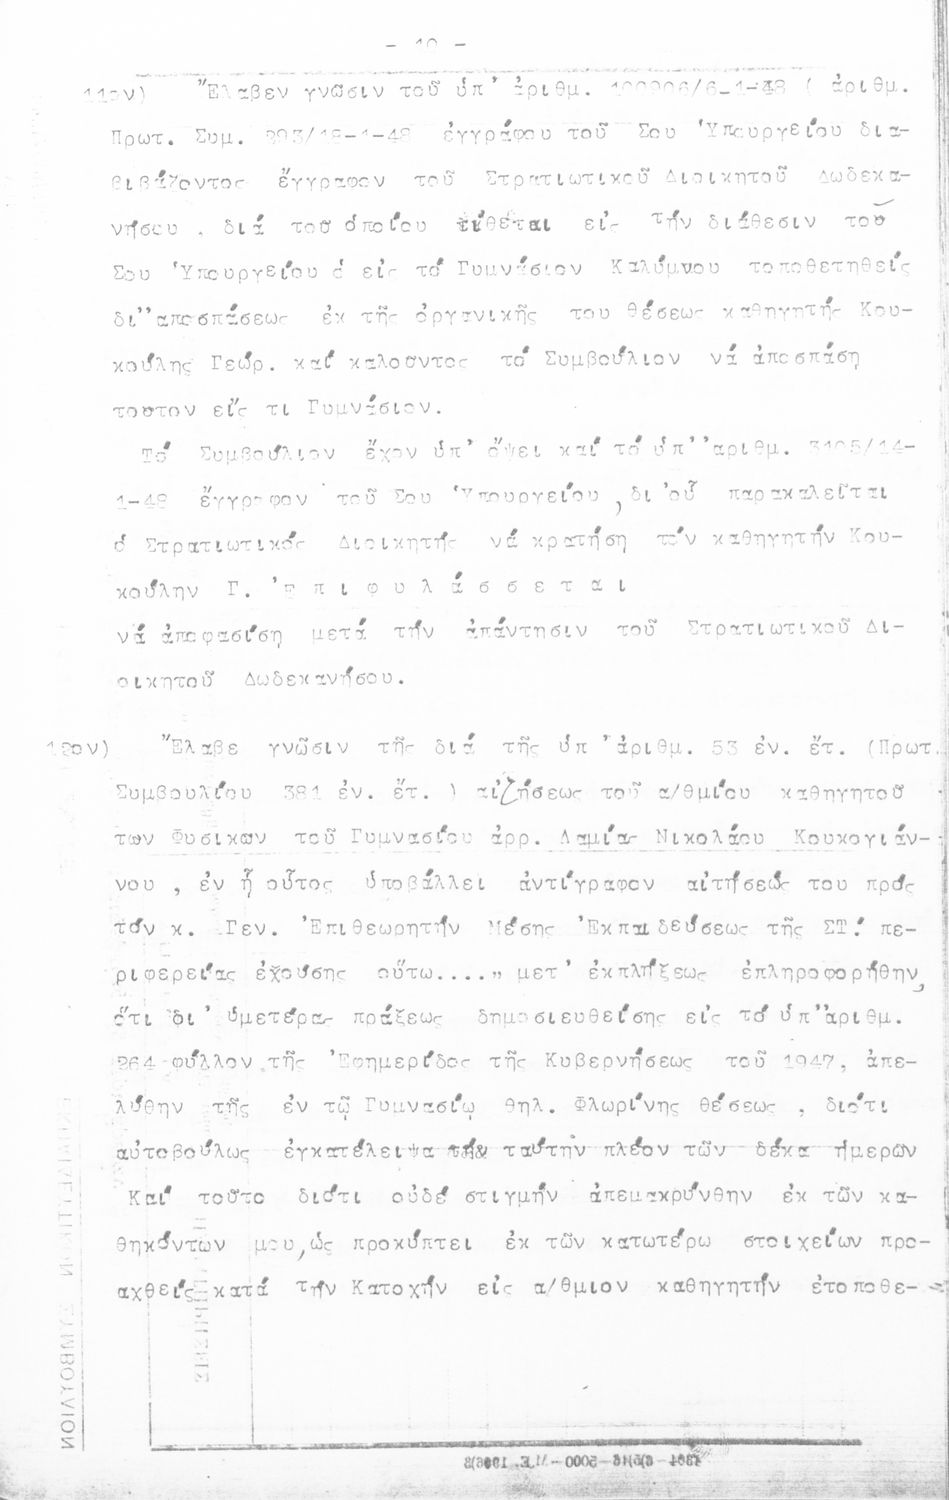 - 10 -
11ον) Ἔλαβεν γνῶσιν τοῦ ὑπ' ἀριθμ. 100906/6-1-48 ( ἀριθμ.
Πρωτ. Συμ. 293/18-1-48 ἐγγράφου τοῦ Σου Ὑπουργείου δια-
βιβάζοντος ἔγγραφον τοῦ Στρατιωτικοῦ Διοικητοῦ Δωδεκα-
νήσου , διά τοῦ ὁποίου τίθεται εἰς τήν διάθεσιν τοῦ
Σου Ὑπουργείου ὁ εἰς τό Γυμνάσιον Καλύμνου τοποθετηθείς
δι''αποσπάσεως ἐκ τῆς ὀργανικῆς του θέσεως καθηγητής Κου-
κούλης Γεώρ. καί καλοῦντος τό Συμβούλιον νά ἀποσπάση
τοῦτον εἴς τι Γυμνάσιον.
Τό Συμβούλιον ἔχον ὑπ' ὄψει καί τό ὑπ''αριθμ. 3105/14-
1-48 ἔγγραφον τοῦ Σου Ὑπουργείου , δι'οὗ παρακαλεῖται
ὁ Στρατιωτικός Διοικητής νά κρατήση τόν καθηγητήν Κου-
κούλην Γ. Ἐ π ι φ υ λ ά σ σ ε τ α ι
νά ἀποφασίση μετά τήν ἀπάντησιν τοῦ Στρατιωτικοῦ Δι-
οικητοῦ Δωδεκανήσου.
12ον) Ἔλαβε γνῶσιν τῆς διά τῆς ὑπ 'ἀριθμ. 53 ἐν. ἔτ. (Πρωτ.
Συμβουλίου 381 ἐν. ἔτ. ) αἰτήσεως τοῦ α/θμίου καθηγητοῦ
των Φυσικῶν τοῦ Γυμνασίου ἀρρ. Λαμίας Νικολάου Κουκογιάν-
νου , ἐν ἧ οὗτος ὑποβάλλει ἀντίγραφον αἰτήσεώς του πρός
τόν κ. Γεν. Ἐπιθεωρητήν Μέσης Ἐκπαιδεύσεως τῆς ΣΤ.' πε-
ριφερείας ἐχούσης οὕτω....,, μετ' ἐκπλήξεως ἐπληροφορήθην,
ὅτι δι' ὑμετέρας πράξεως δημοσιευθείσης εἰς τό ὑπ''ἀριθμ.
264 φύλλον τῆς Ἐφημερίδος τῆς Κυβερνήσεως τοῦ 1947, ἀπε-
λύθην τῆς ἐν τῷ Γυμνασίῳ θηλ. Φλωρίνης θέσεως , διότι
αὐτοβούλως ἐγκατέλειψα ταύτην πλέον τῶν δέκα ἡμερῶν
Καί τοῦτο διότι οὐδέ στιγμήν ἀπεμακρύνθην ἐκ τῶν κα-
θηκόντων μου, ὡς προκύπτει ἐκ τῶν κατωτέρω στοιχείων προ-
αχθείς κατά τήν Κατοχήν εἰς α/θμιον καθηγητήν ἐτοποθε-